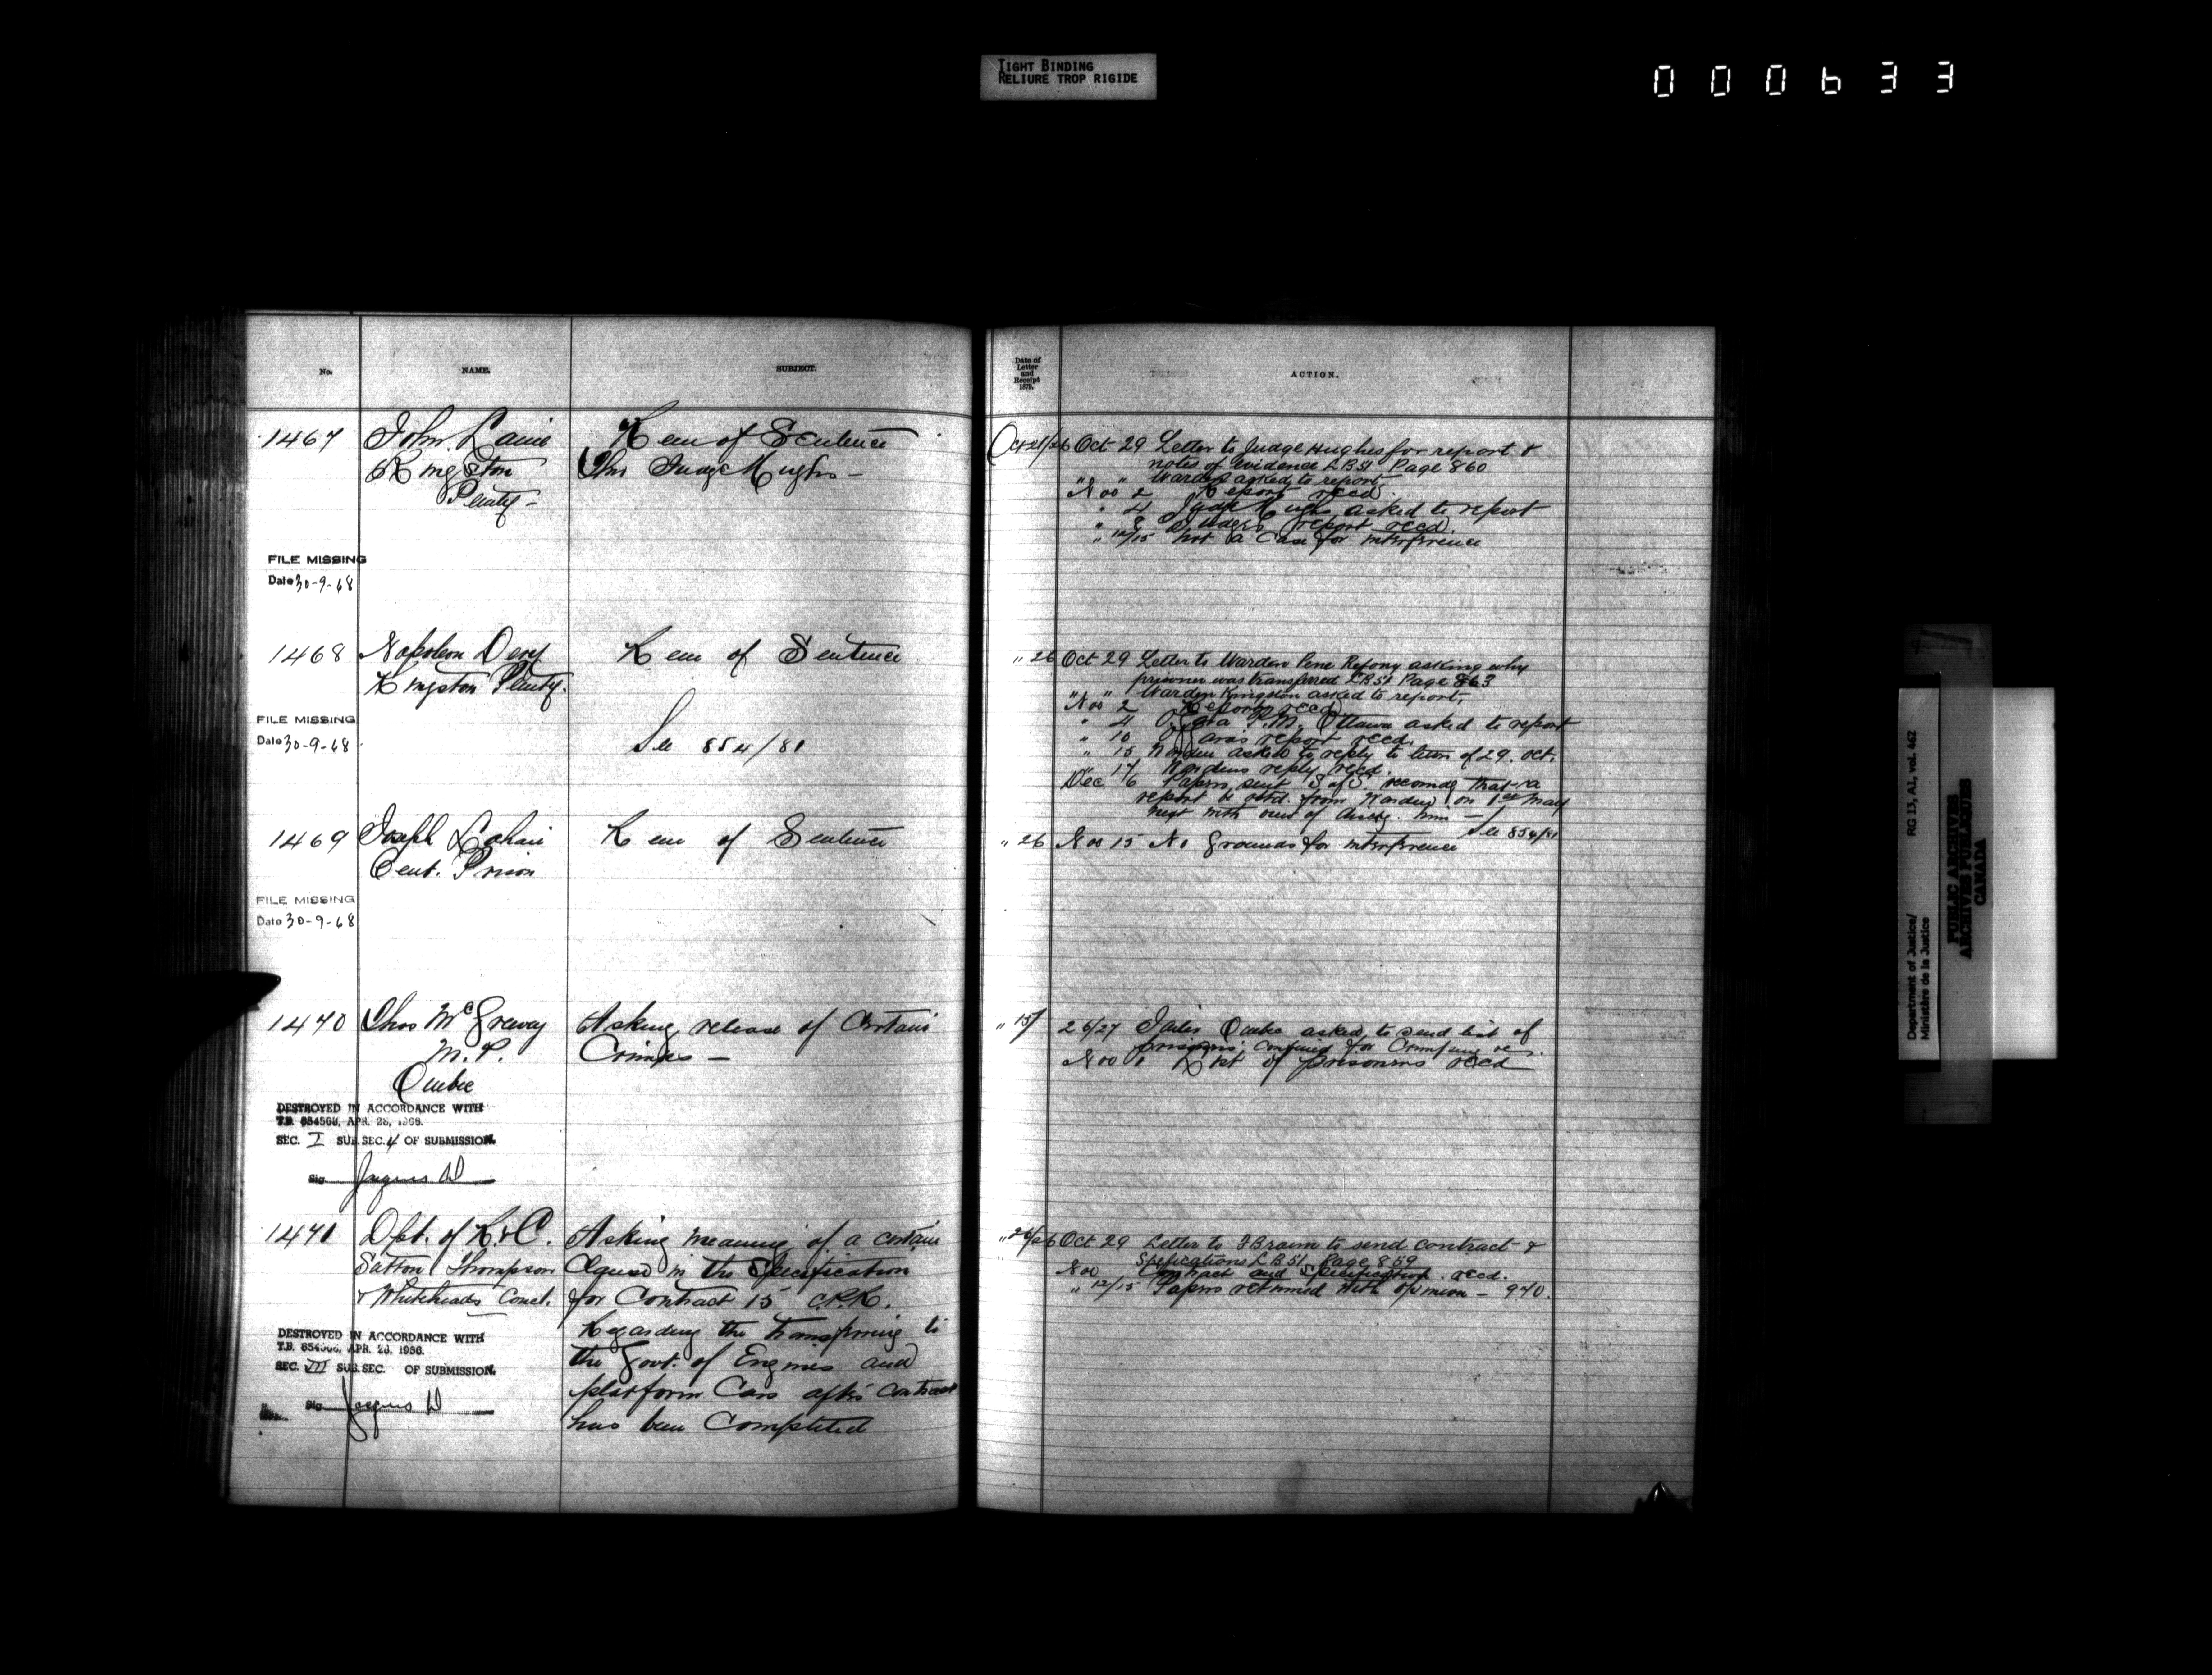 TIGHT BINDING
RELIURE TROP RIGIDE
000633
No. NAME. SUBJECT.
1467 John Laine Rem of Sentence
Kingston Thro Judge Hughes -
Penity -
FILE MISSING
Date 30-9-68
1468 Napoleon Dery Rem of Sentence
Kingston Penity.
FILE MISSING
Date 30-9-68
See 854/81
1469 Joseph Rem of Sentence
Cent. Prison
FILE MISSING
Date 30-9-68
1470 Thos McGreevy Asking release of Certain
M.P. Crimps -
Quebec
DESTROYED IN ACCORDANCE WITH
T.B. 654566, APR. 28, 1966.
SEC. I SUB. SEC. 4 OF SUBMISSION.
Sig.
1471 Dept. of R & C. Asking meaning of a certain
Sutton Thompson Clause in the Specification
& Whiteheads Conct. for Contract 15 C.P.R.
Regarding the transferring to
the Govt. of Engines and
platform Cars after contract
has been Completed
DESTROYED IN ACCORDANCE WITH
T.B. 654566, APR. 28, 1966.
SEC. VII SUB. SEC. OF SUBMISSION.
Sig.
Date of
Letter
and
Receipt
1879.
ACTION.
Oct 21/26 Oct 29 Letter to Judge Hughes for report &
notes of evidence LB 51 Page 860
" " Warden asked to report
Nov 2 Report recd.
" 4 Judge Hughs asked to report
" 8 Judges report recd.
" 12/15 Not a Case for interference
" 26 Oct 29 Letter to Warden Pene Refony asking why
prisoner was transferred LB 51 Page 863
" " Warden Kingston asked to report,
Nov 2 Report recd
" 4 O'Gara P.M. Ottawa asked to report
" 10 O'Garas report recd.
" 15 Warden asked to reply to letter of 29. Oct.
" 17 Wardens reply recd.
Dec 6 Papers sent S of S recomdg that a
report be obtd. from Warden on 1st May
next with view of dischg. him -
See 854/81
" 26 Nov 15 No grounds for interference
" 15/ 26/27 Jailer Quebec asked to send list of
prisoners confined for Crimping
Nov 1 List of prisoners recd
" 26 Oct 29 Letter to F Braun to send contract &
Spefications LB 51 Page 859
Nov Contract and Specification recd.
" 12/15 Papers returned with opinion - 940.
Department of Justice/
Ministère de la Justice
RG 13, A1, vol. 462
PUBLIC ARCHIVES
ARCHIVES PUBLIQUES
CANADA